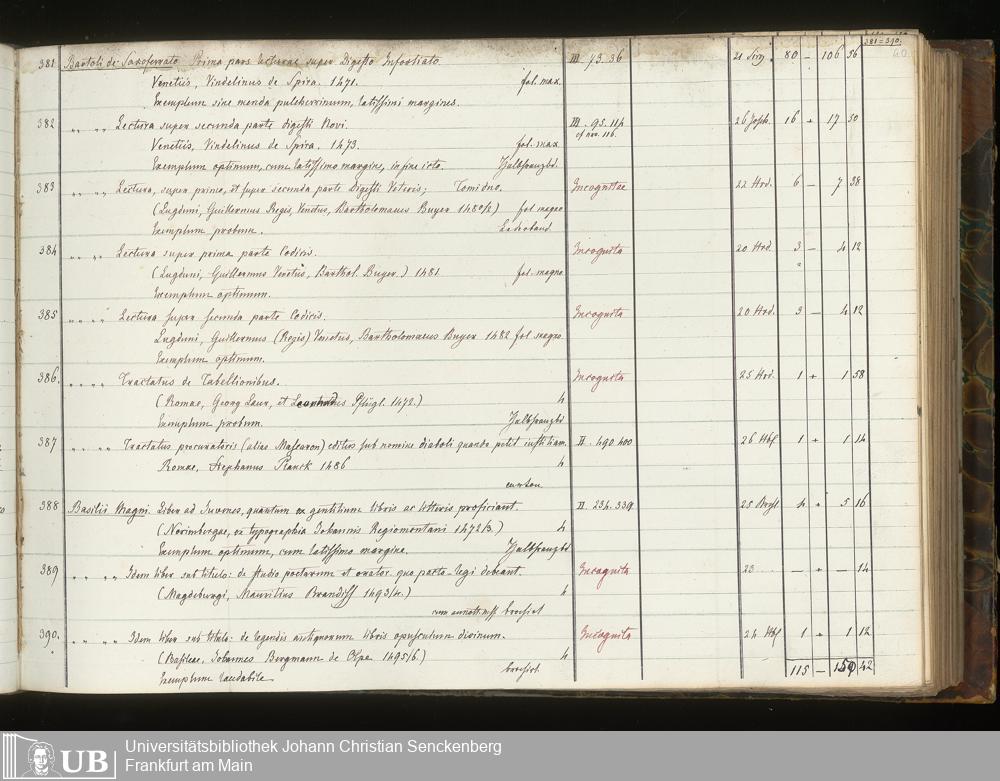 381 = 390.
40.
381. Bartoli de Saxoferrato Prima pars lecturae super Digesto Infortiato. III 73. 36 21 Sing. 80 – 106 56
Venetiis, Vindelinus de Spira. 1471. fol. max.
Exemplum sine menda pulcherrimum, latissimi margines.
382 " " " Lectura super secunda parte digesti Novi. III. 95. 114 26 Joseph. 16 + 17 50
cf nro. 116.
Venetiis, Vindelinus de Spira. 1473. fol. max
Exemplum optimum, cum latissimo margine, in fine icto. Halbfranzbd.
383 " " " Lectura, super prima, et super secunda parte Digesti Veteris; Tomi duo. Incognitae 22 Hrd. 6 – 7 38
(Lugduni, Guillermus Regis, Venetus, Bartholomaeus Buyer 1480/2) fol magno
Exemplum probum. Lederband.
384 " " " Lectura super prima parte Codicis. Incognita 20 Hrd 3 – 4 12
(Lugduni, Guillermus Venetus, Barthol. Buyer.) 1481. fol. magno.
Exemplum optimum.
385 " " " Lectura super secunda parte Codicis. Incognita 20 Hrd. 3 – 4 12
Lugduni, Guillermus (Regis) Venetus, Bartholomaeus Buyer 1482 fol magno
Exemplum optimum.
386. " " " " Tractatus de Tabellionibus. Incognita 25 Hrd. 1 + 1 58
(Romae, Georg Laur, et Leonhardus Pflugl. 1472.) 4
Exemplum probum. Halbfranzbd
387 " " " Tractatus procuratoris (alias Mascaron) editus sub nomine diaboli quando petit justitiam. II. 490. 400 26 Hbf 1 + 1 14
Romae, Stephanus Planck 1486 4
carton
388 Basilii Magni. Liber ad Juvenes, quantum ex gentilium libris ac litteris proficiant. II. 234. 339. 25 4 + 5 16
(Norimbergae, ex typographia Johannis Regiomontani 1472/3.) 4
Exemplum optimum, cum latissimo margine. Halbfranzbd
389 " " " Idem liber sub titulo: de studio poetarum et orator. quo pacto legi debeant. Incognita 23 — + — 14
(Magdeburgi, Mauritius Brandiss 1493/4.) 4
cum annott. mss. brochirt
390. " " " Idem liber sub titulo: de legendis antiquorum libris opusculum divinum. Incognita 24 Hbf 1 + 1 12
(Basileae, Johannes Bergmann de Olpe 1495/6.) 4
Exemplum laudabile brochirt. 115 – 42
UB
Universitätsbibliothek Johann Christian Senckenberg
Frankfurt am Main